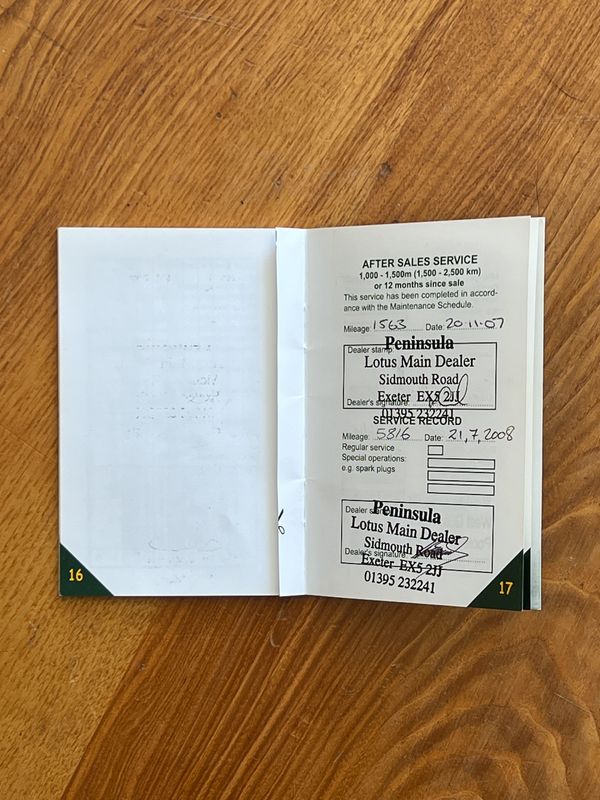 AFTER SALES SERVICE
1,000 - 1,500m (1,500 - 2,500 km)
or 12 months since sale
This service has been completed in accord-
ance with the Maintenance Schedule.
Mileage: 1563 Date: 20.11.07
Dealer stamp:
Peninsula
Lotus Main Dealer
Sidmouth Road
Exeter EX5 2JJ
Dealer's signature:
01395 232241
SERVICE RECORD
Mileage: 5816 Date: 21,7,2008
Regular service
Special operations:
e.g. spark plugs
Dealer stamp:
Peninsula
Lotus Main Dealer
Sidmouth Road
Dealer's signature:
Exeter EX5 2JJ
01395 232241
16
17